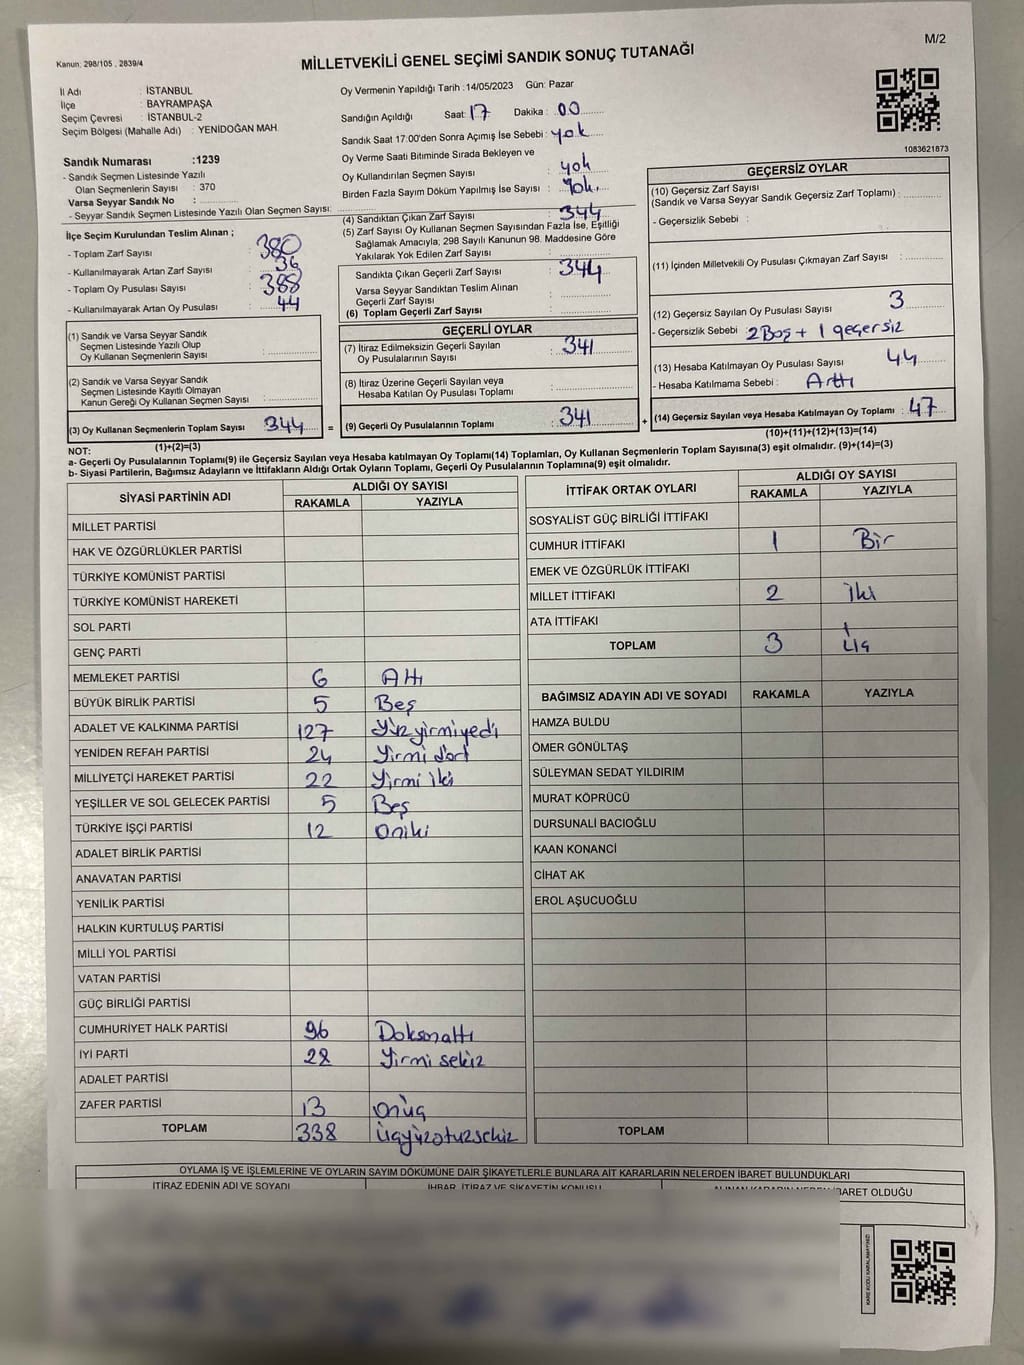 M/2
Kanun: 298/105 , 2839/4
MİLLETVEKİLİ GENEL SEÇİMİ SANDIK SONUÇ TUTANAĞI
İl Adı : İSTANBUL
İlçe : BAYRAMPAŞA
Seçim Çevresi : İSTANBUL-2
Seçim Bölgesi (Mahalle Adı) : YENİDOĞAN MAH.
Oy Vermenin Yapıldığı Tarih :14/05/2023 Gün: Pazar
Sandığın Açıldığı Saat: 17 Dakika : 00
Sandık Saat 17:00'den Sonra Açımış İse Sebebi : yok
Oy Verme Saati Bitiminde Sırada Bekleyen ve
Oy Kullandırılan Seçmen Sayısı : yok
Birden Fazla Sayım Döküm Yapılmış İse Sayısı : Yok.
1083621873
Sandık Numarası :1239
- Sandık Seçmen Listesinde Yazılı
Olan Seçmenlerin Sayısı : 370
Varsa Seyyar Sandık No :
- Seyyar Sandık Seçmen Listesinde Yazılı Olan Seçmen Sayısı:
İlçe Seçim Kurulundan Teslim Alınan ;
- Toplam Zarf Sayısı : 380
- Kullanılmayarak Artan Zarf Sayısı : 36
- Toplam Oy Pusulası Sayısı : 388
- Kullanılmayarak Artan Oy Pusulası : 44
(1) Sandık ve Varsa Seyyar Sandık
Seçmen Listesinde Yazılı Olup
Oy Kullanan Seçmenlerin Sayısı :
(2) Sandık ve Varsa Seyyar Sandık
Seçmen Listesinde Kayıtlı Olmayan
Kanun Gereği Oy Kullanan Seçmen Sayısı :
(3) Oy Kullanan Seçmenlerin Toplam Sayısı : 344 =
(1)+(2)=(3)
(4) Sandıktan Çıkan Zarf Sayısı : 344
(5) Zarf Sayısı Oy Kullanan Seçmen Sayısından Fazla İse, Eşitliği
Sağlamak Amacıyla; 298 Sayılı Kanunun 98. Maddesine Göre
Yakılarak Yok Edilen Zarf Sayısı :
Sandıkta Çıkan Geçerli Zarf Sayısı : 344
Varsa Seyyar Sandıktan Teslim Alınan
Geçerli Zarf Sayısı :
(6) Toplam Geçerli Zarf Sayısı :
GEÇERLİ OYLAR
(7) İtiraz Edilmeksizin Geçerli Sayılan
Oy Pusulalarının Sayısı : 341
(8) İtiraz Üzerine Geçerli Sayılan veya
Hesaba Katılan Oy Pusulası Toplamı :
(9) Geçerli Oy Pusulalarının Toplamı : 341 +
GEÇERSİZ OYLAR
(10) Geçersiz Zarf Sayısı
(Sandık ve Varsa Seyyar Sandık Geçersiz Zarf Toplamı) :
- Geçersizlik Sebebi :
(11) İçinden Milletvekili Oy Pusulası Çıkmayan Zarf Sayısı :
(12) Geçersiz Sayılan Oy Pusulası Sayısı : 3
- Geçersizlik Sebebi : 2 Boş + 1 geçersiz
(13) Hesaba Katılmayan Oy Pusulası Sayısı : 44
- Hesaba Katılmama Sebebi : Arttı
(14) Geçersiz Sayılan veya Hesaba Katılmayan Oy Toplamı : 47
(10)+(11)+(12)+(13)=(14)
NOT:
a- Geçerli Oy Pusulalarının Toplamı(9) ile Geçersiz Sayılan veya Hesaba katılmayan Oy Toplamı(14) Toplamları, Oy Kullanan Seçmenlerin Toplam Sayısına(3) eşit olmalıdır. (9)+(14)=(3)
b- Siyasi Partilerin, Bağımsız Adayların ve İttifakların Aldığı Ortak Oyların Toplamı, Geçerli Oy Pusulalarının Toplamına(9) eşit olmalıdır.
SİYASİ PARTİNİN ADI ALDIĞI OY SAYISI
RAKAMLA YAZIYLA
MİLLET PARTİSİ
HAK VE ÖZGÜRLÜKLER PARTİSİ
TÜRKİYE KOMÜNİST PARTİSİ
TÜRKİYE KOMÜNİST HAREKETİ
SOL PARTİ
GENÇ PARTİ
MEMLEKET PARTİSİ 6 Altı
BÜYÜK BİRLİK PARTİSİ 5 Beş
ADALET VE KALKINMA PARTİSİ 127 Yüzyirmiyedi
YENİDEN REFAH PARTİSİ 24 Yirmi dört
MİLLİYETÇİ HAREKET PARTİSİ 22 Yirmi iki
YEŞİLLER VE SOL GELECEK PARTİSİ 5 Beş
TÜRKİYE İŞÇİ PARTİSİ 12 Oniki
ADALET BİRLİK PARTİSİ
ANAVATAN PARTİSİ
YENİLİK PARTİSİ
HALKIN KURTULUŞ PARTİSİ
MİLLİ YOL PARTİSİ
VATAN PARTİSİ
GÜÇ BİRLİĞİ PARTİSİ
CUMHURİYET HALK PARTİSİ 96 Doksanaltı
İYİ PARTİ 28 Yirmi sekiz
ADALET PARTİSİ
ZAFER PARTİSİ 13 Onüç
TOPLAM 338 Üçyüzotuzsekiz
İTTİFAK ORTAK OYLARI ALDIĞI OY SAYISI
RAKAMLA YAZIYLA
SOSYALİST GÜÇ BİRLİĞİ İTTİFAKI
CUMHUR İTTİFAKI 1 Bir
EMEK VE ÖZGÜRLÜK İTTİFAKI
MİLLET İTTİFAKI 2 İki
ATA İTTİFAKI
TOPLAM 3 Üç
BAĞIMSIZ ADAYIN ADI VE SOYADI RAKAMLA YAZIYLA
HAMZA BULDU
ÖMER GÖNÜLTAŞ
SÜLEYMAN SEDAT YILDIRIM
MURAT KÖPRÜCÜ
DURSUNALİ BACIOĞLU
KAAN KONANCİ
CİHAT AK
EROL AŞUCUOĞLU
TOPLAM
OYLAMA İŞ VE İŞLEMLERİNE VE OYLARIN SAYIM DÖKÜMÜNE DAİR ŞİKAYETLERLE BUNLARA AİT KARARLARIN NELERDEN İBARET BULUNDUKLARI
İTİRAZ EDENİN ADI VE SOYADI İHBAR, İTİRAZ VE ŞİKAYETİN KONUSU ALINAN KARARIN NEDEN İBARET OLDUĞU